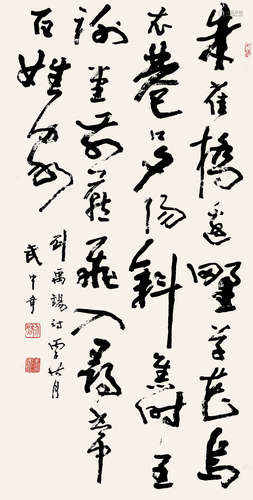 朱雀橋邊野草花烏
衣巷口夕陽斜舊時王
謝堂前燕飛入尋常
百姓家
劉禹錫詩 月
武中奇